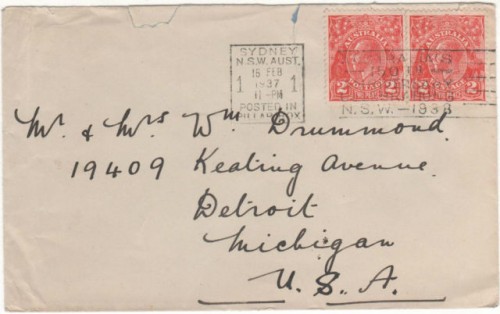 SYDNEY
N.S.W. AUST.
15 FEB
1937
11-PM
1 1
POSTED IN
PILLAR BOX
AUSTRALIA AUSTRALIA
2 2 2 2
N.S.W.-1938
Mr. & Mrs Wm Drummond.
19409 Keating Avenue.
Detroit
Michigan
U.S.A.